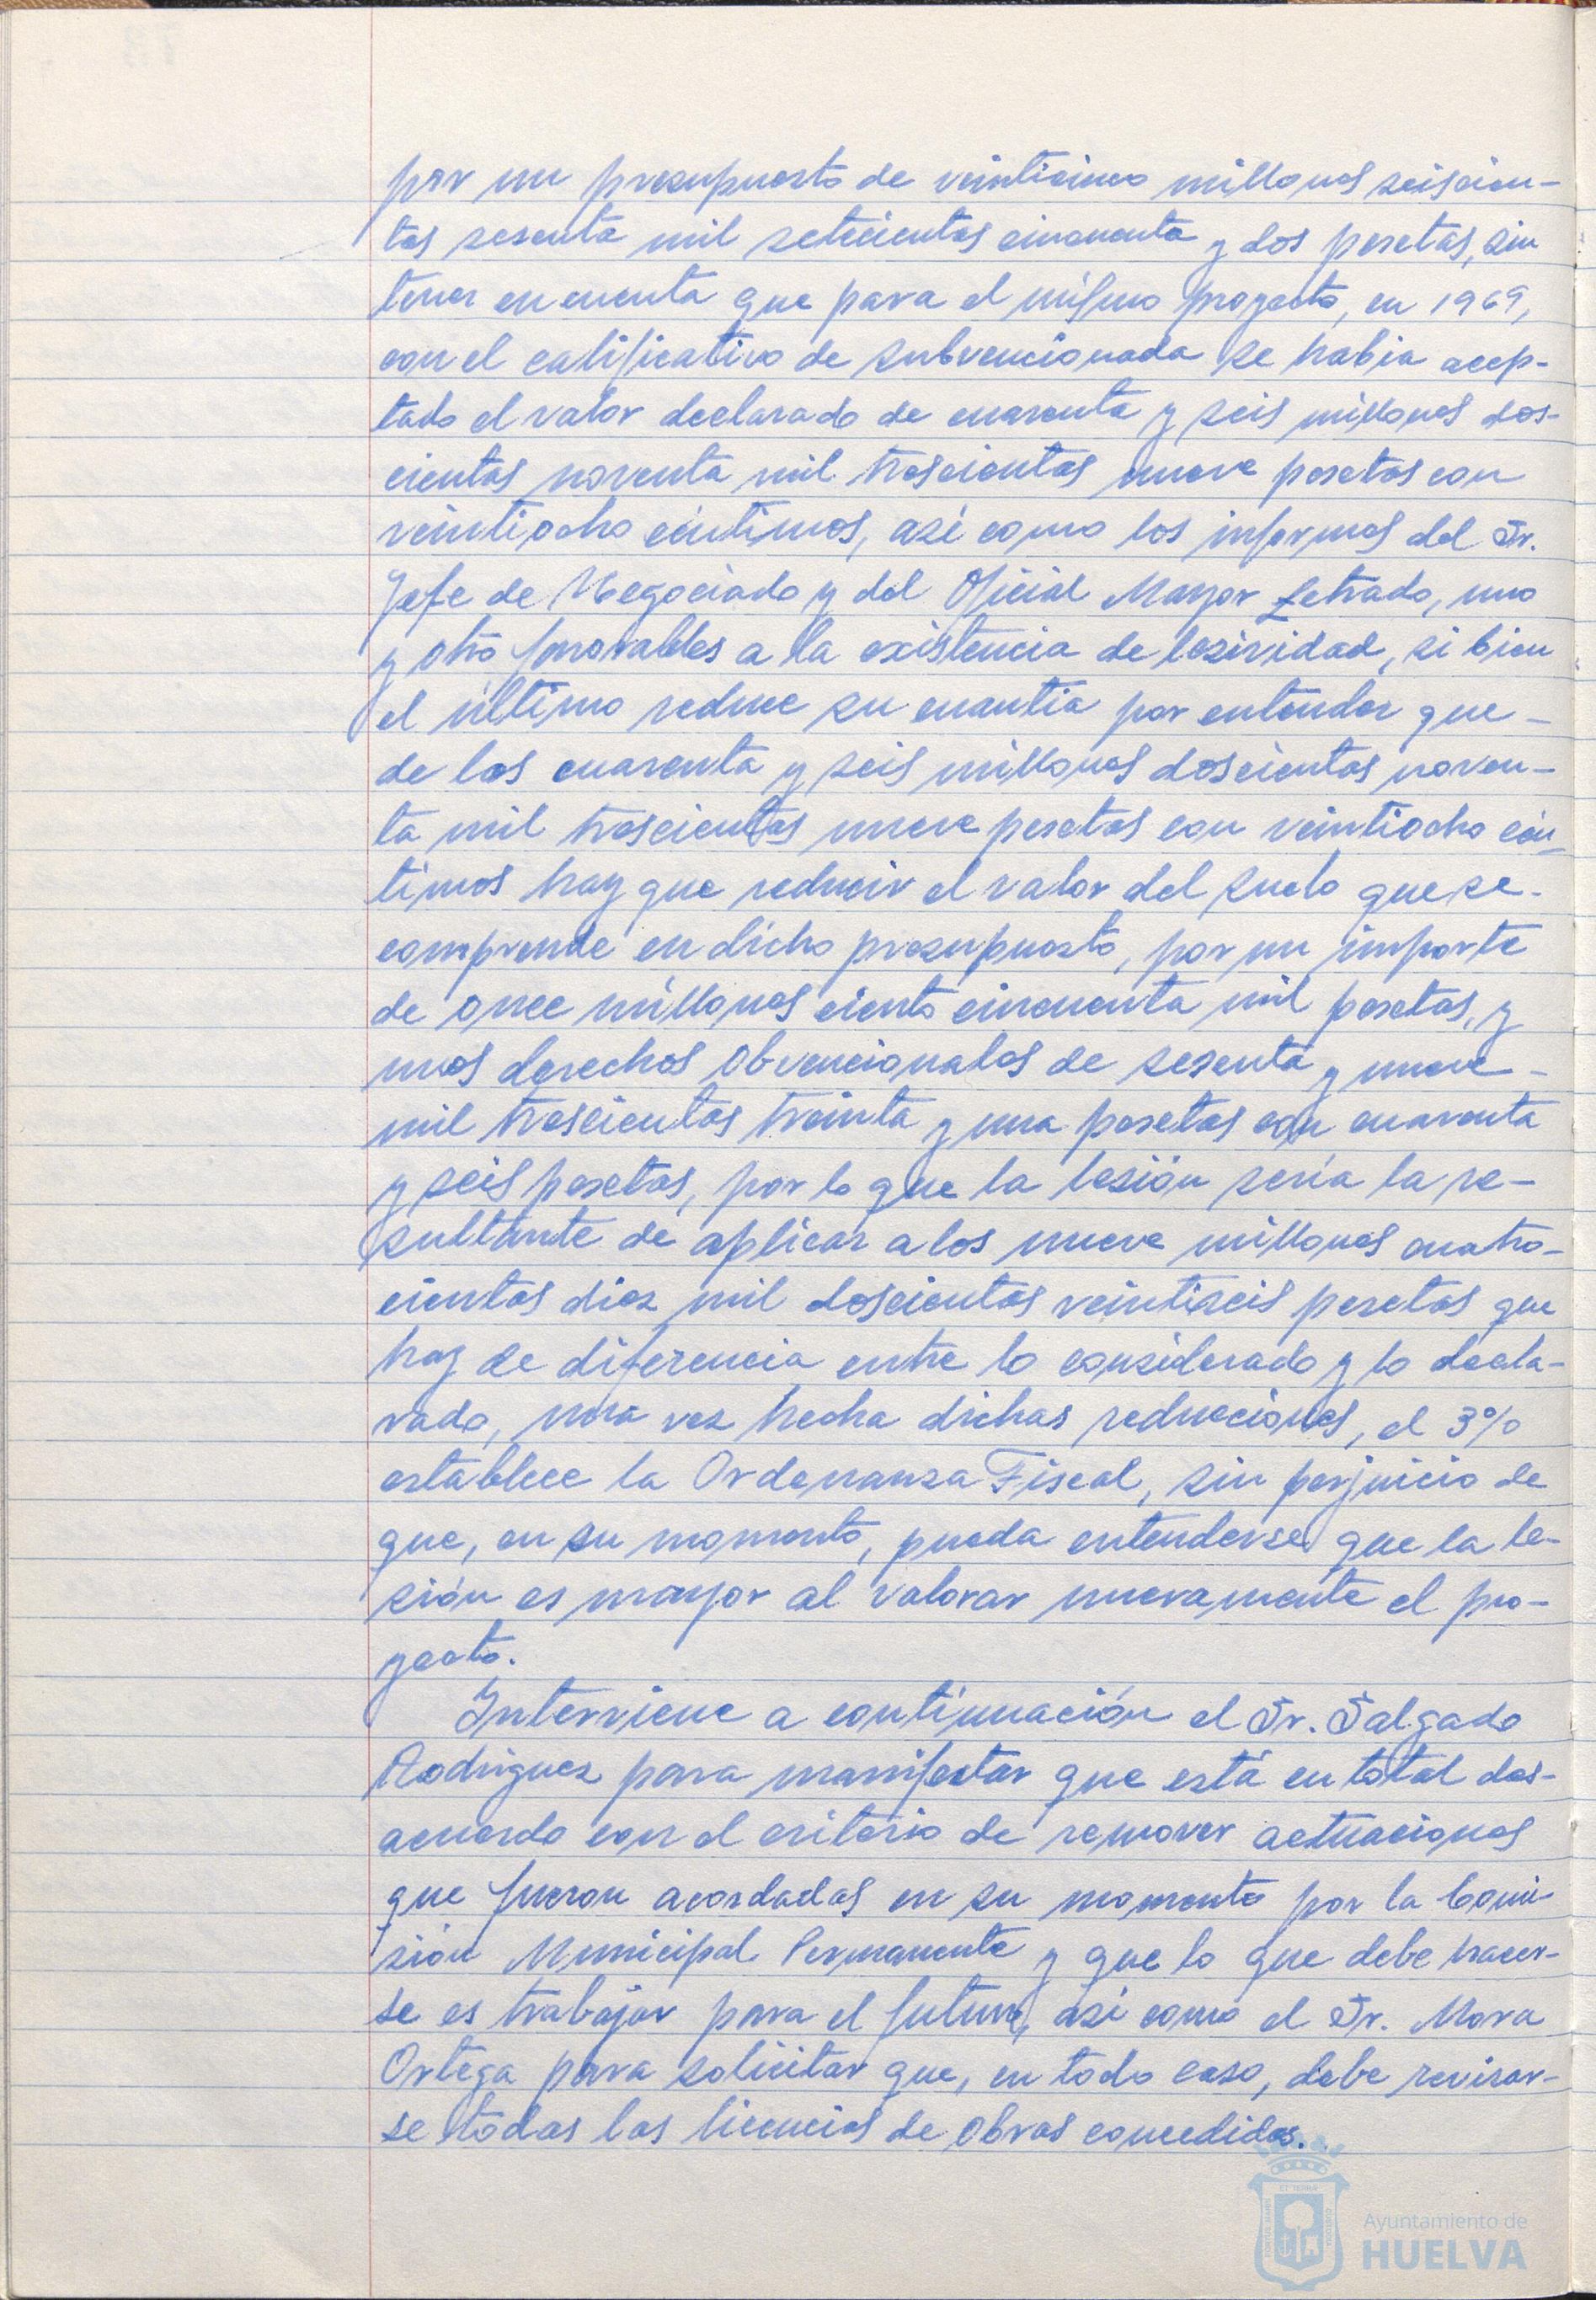 por un presupuesto de veinticinco millones seiscien-
tas sesenta mil setecientas cincuenta y dos pesetas, sin
tener en cuenta que para el mismo proyecto, en 1969,
con el calificativo de subvencionada se habia acep-
tado el valor declarado de cuarenta y seis millones dos-
cientas noventa mil trescientas nueve pesetas con
veintiocho céntimos, asi como los informes del Sr.
Jefe de Negociado y del Oficial Mayor Letrado, uno
y otro favorables a la existencia de lesividad, si bien
el último reduce su cuantia por entender que -
de los cuarenta y seis millones doscientas noven-
ta mil trescientas nueve pesetas con veintiocho cén-
timos hay que reducir el valor del suelo que se -
comprende en dicho presupuesto, por un importe
de once millones ciento cincuenta mil pesetas, y
unos derechos obvencionales de sesenta y nueve -
mil trescientas treinta y una pesetas con cuarenta
y seis pesetas, por lo que la lesión sería la re-
sultante de aplicar a los nueve millones cuatro-
cientas diez mil doscientas veintiseis pesetas que
hay de diferencia entre lo considerado y lo decla-
rado, una vez hecha dichas reducciones, el 3%
establece la Ordenanza Fiscal, sin perjuicio de
que, en su momento, pueda entenderse que la le-
sión es mayor al valorar nuevamente el pro-
yecto.
Interviene a continuación el Sr. Salgado
Rodriguez para manifestar que está en total des-
acuerdo con el criterio de remover actuaciones
que fueron acordadas en su momento por la Comi-
sión Municipal Permanente y que lo que debe hacer-
se es trabajar para el futuro, asi como el Sr. Mora
Ortega para solicitar que, en todo caso, debe revisar-
se todas las licencias de obras concedidas.
Ayuntamiento de
HUELVA